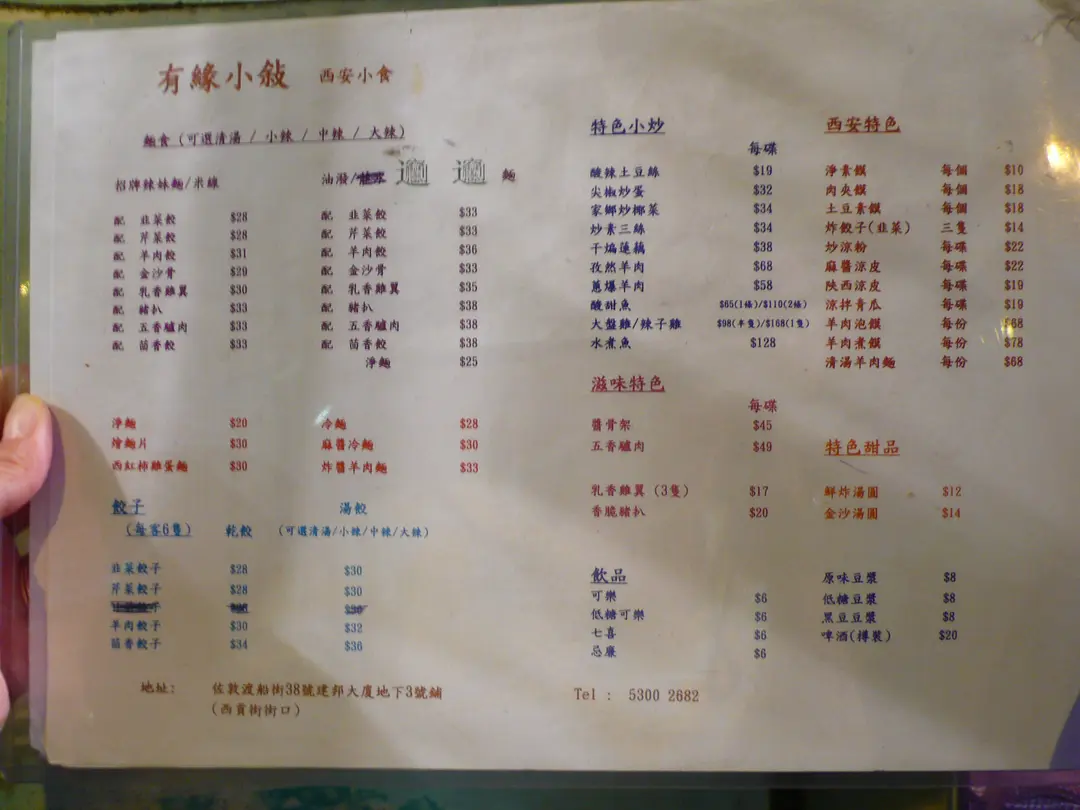 有緣小敍 西安小食
麵食 (可選清湯 / 小辣 / 中辣 / 大辣)
招牌辣妹麵/米線
配 韭菜餃 $28
配 芹菜餃 $28
配 羊肉餃 $31
配 金沙骨 $29
配 乳香雞翼 $30
配 豬扒 $33
配 五香驢肉 $33
配 茴香餃 $33
油潑/ 麵
配 韭菜餃 $33
配 芹菜餃 $33
配 羊肉餃 $36
配 金沙骨 $33
配 乳香雞翼 $35
配 豬扒 $38
配 五香驢肉 $38
配 茴香餃 $38
淨麵 $25
淨麵 $20
燴麵片 $30
西紅柿雞蛋麵 $30
冷麵 $28
麻醬冷麵 $30
炸醬羊肉麵 $33
餃子 湯餃
(每客6隻) 乾餃 (可選清湯/小辣/中辣/大辣)
韭菜餃子 $28 $30
芹菜餃子 $28 $30
羊肉餃子 $30 $32
茴香餃子 $34 $36
特色小炒
每碟
酸辣土豆絲 $19
尖椒炒蛋 $32
家鄉炒椰菜 $34
炒素三絲 $34
干煸蓮藕 $38
孜然羊肉 $68
蔥爆羊肉 $58
酸甜魚 $65(1條)/$110(2條)
大盤雞/辣子雞 $98(半隻)/$168(1隻)
水煮魚 $128
滋味特色
每碟
醬骨架 $45
五香驢肉 $49
乳香雞翼 (3隻) $17
香脆豬扒 $20
飲品
可樂 $6
低糖可樂 $6
七喜 $6
忌廉 $6
西安特色
淨素饃 每個 $10
肉夾饃 每個 $18
土豆素饃 每個 $18
炸餃子(韭菜) 三隻 $14
炒涼粉 每碟 $22
麻醬涼皮 每碟 $22
陝西涼皮 每碟 $19
涼拌青瓜 每碟 $19
羊肉泡饃 每份 $68
羊肉煮饃 每份 $78
清湯羊肉麵 每份 $68
特色甜品
鮮炸湯圓 $12
金沙湯圓 $14
原味豆漿 $8
低糖豆漿 $8
黑豆豆漿 $8
啤酒(樽裝) $20
地址: 佐敦渡船街38號建邦大廈地下3號舖
(西貢街街口)
Tel : 5300 2682